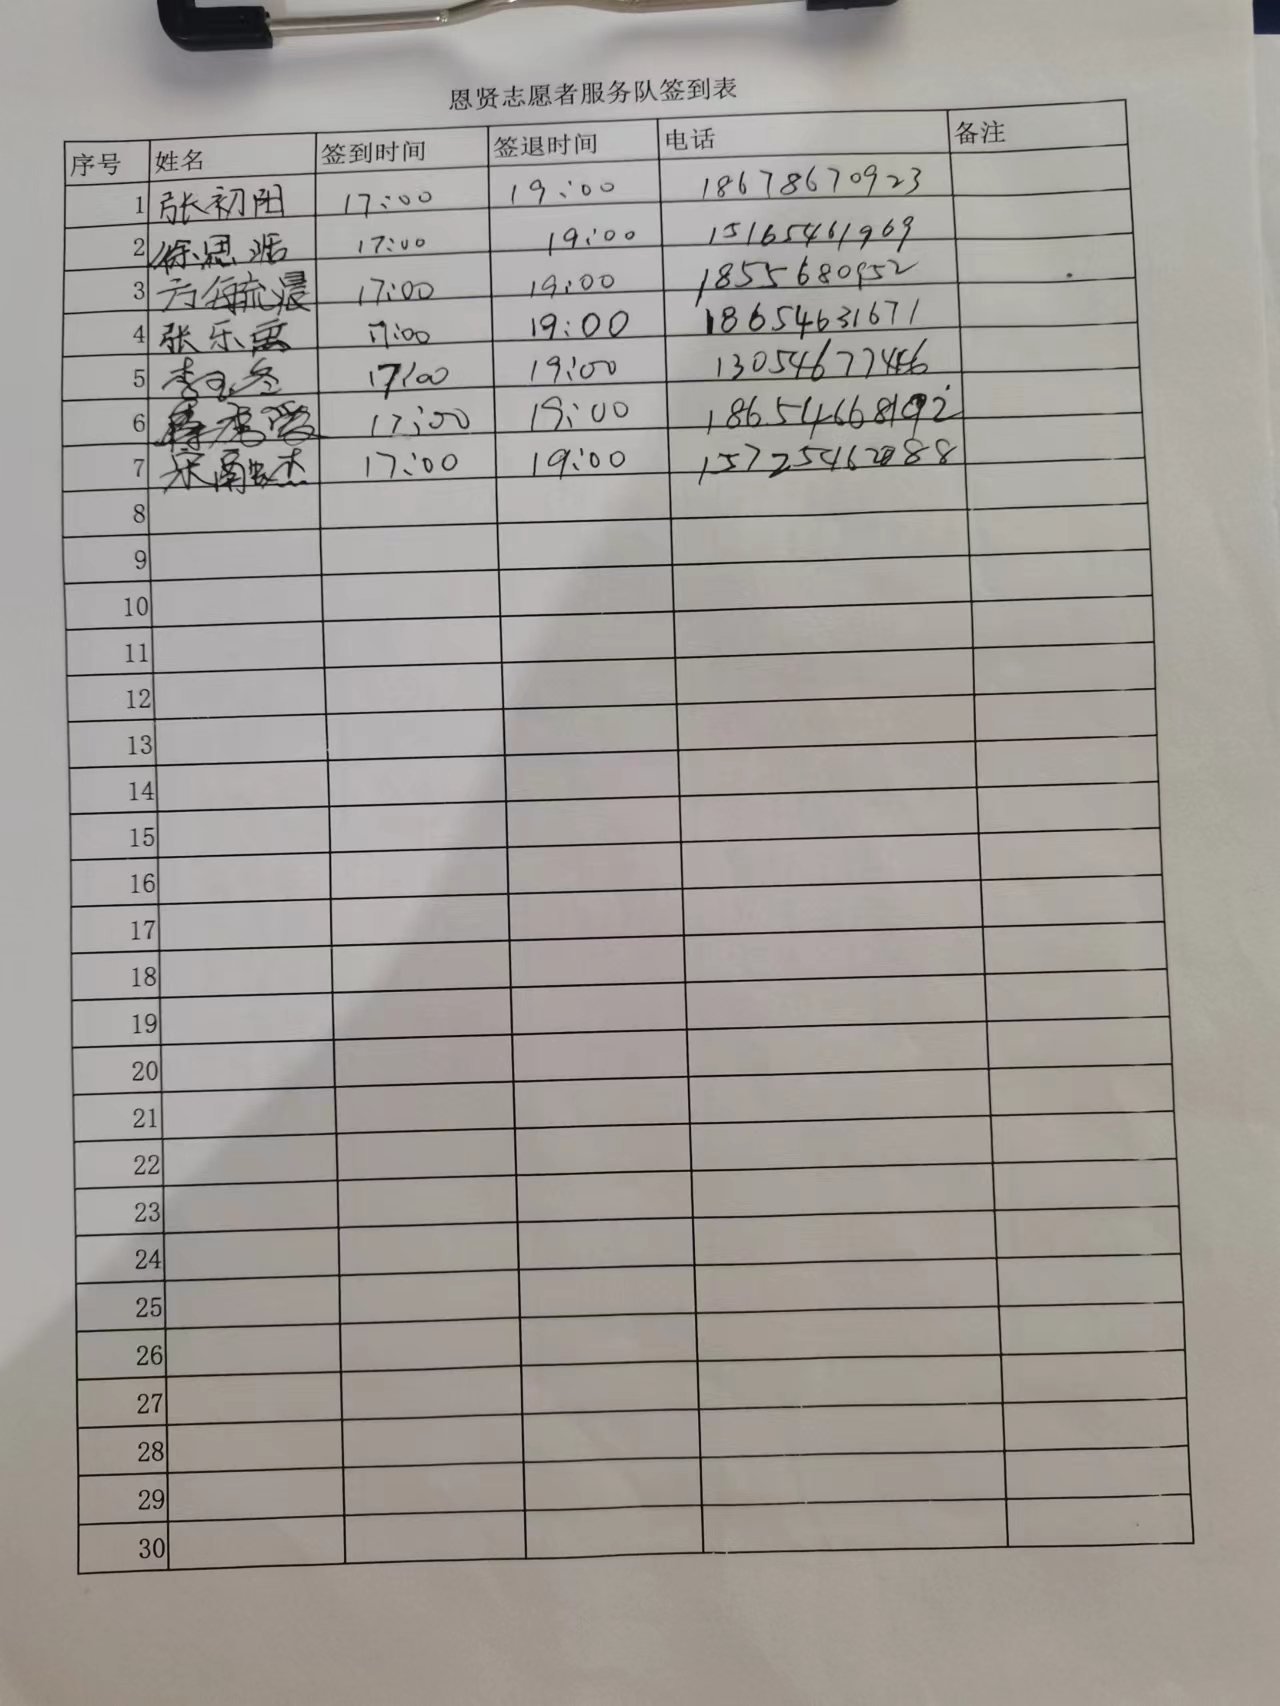 恩贤志愿者服务队签到表
序号 姓名 签到时间 签退时间 电话 备注
1 张初阳 17:00 19:00 18678670923
2 徐思 17:00 19:00 15165461969
3 17:00 19:00 1855680952
4 张乐 17:00 19:00 18654631671
5 李玉 17:00 19:00
6 17:00 19:00
7 宋 杰 17:00 19:00
8
9
10
11
12
13
14
15
16
17
18
19
20
21
22
23
24
25
26
27
28
29
30